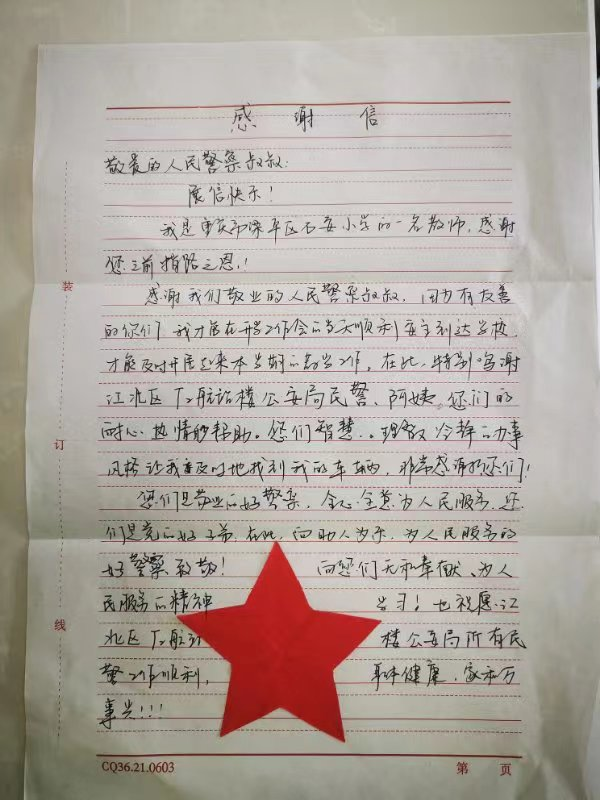 感谢信
敬爱的人民警察叔叔:
展信快乐!
我是重庆市梁平区石安小学的一名教师,感谢
您之前指路之恩!
感谢我们敬业的人民警察叔叔,因为有友善
的你们,我才能在开学工作会的当天顺利安全到达学校,
才能及时开展起来本学期的教学工作,在此,特别鸣谢
江北区 T2航站楼公安局民警、阿姨,您们的
耐心、热情的帮助。您们智慧、理智、冷静的办事
风格让我及时地找到我的车辆,非常感谢您们!
您们是敬业的好警察,全心全意为人民服务,您
们是党的好儿女。在此,向助人为乐,为人民服务的
好警察致敬! 向您们无私奉献、为人
民服务的精神 学习!也祝愿江
北区T2航站 楼公安局所有民
警工作顺利, 身体健康,家和万
事兴!!!
装
订
线
CQ36.21.0603 第 页